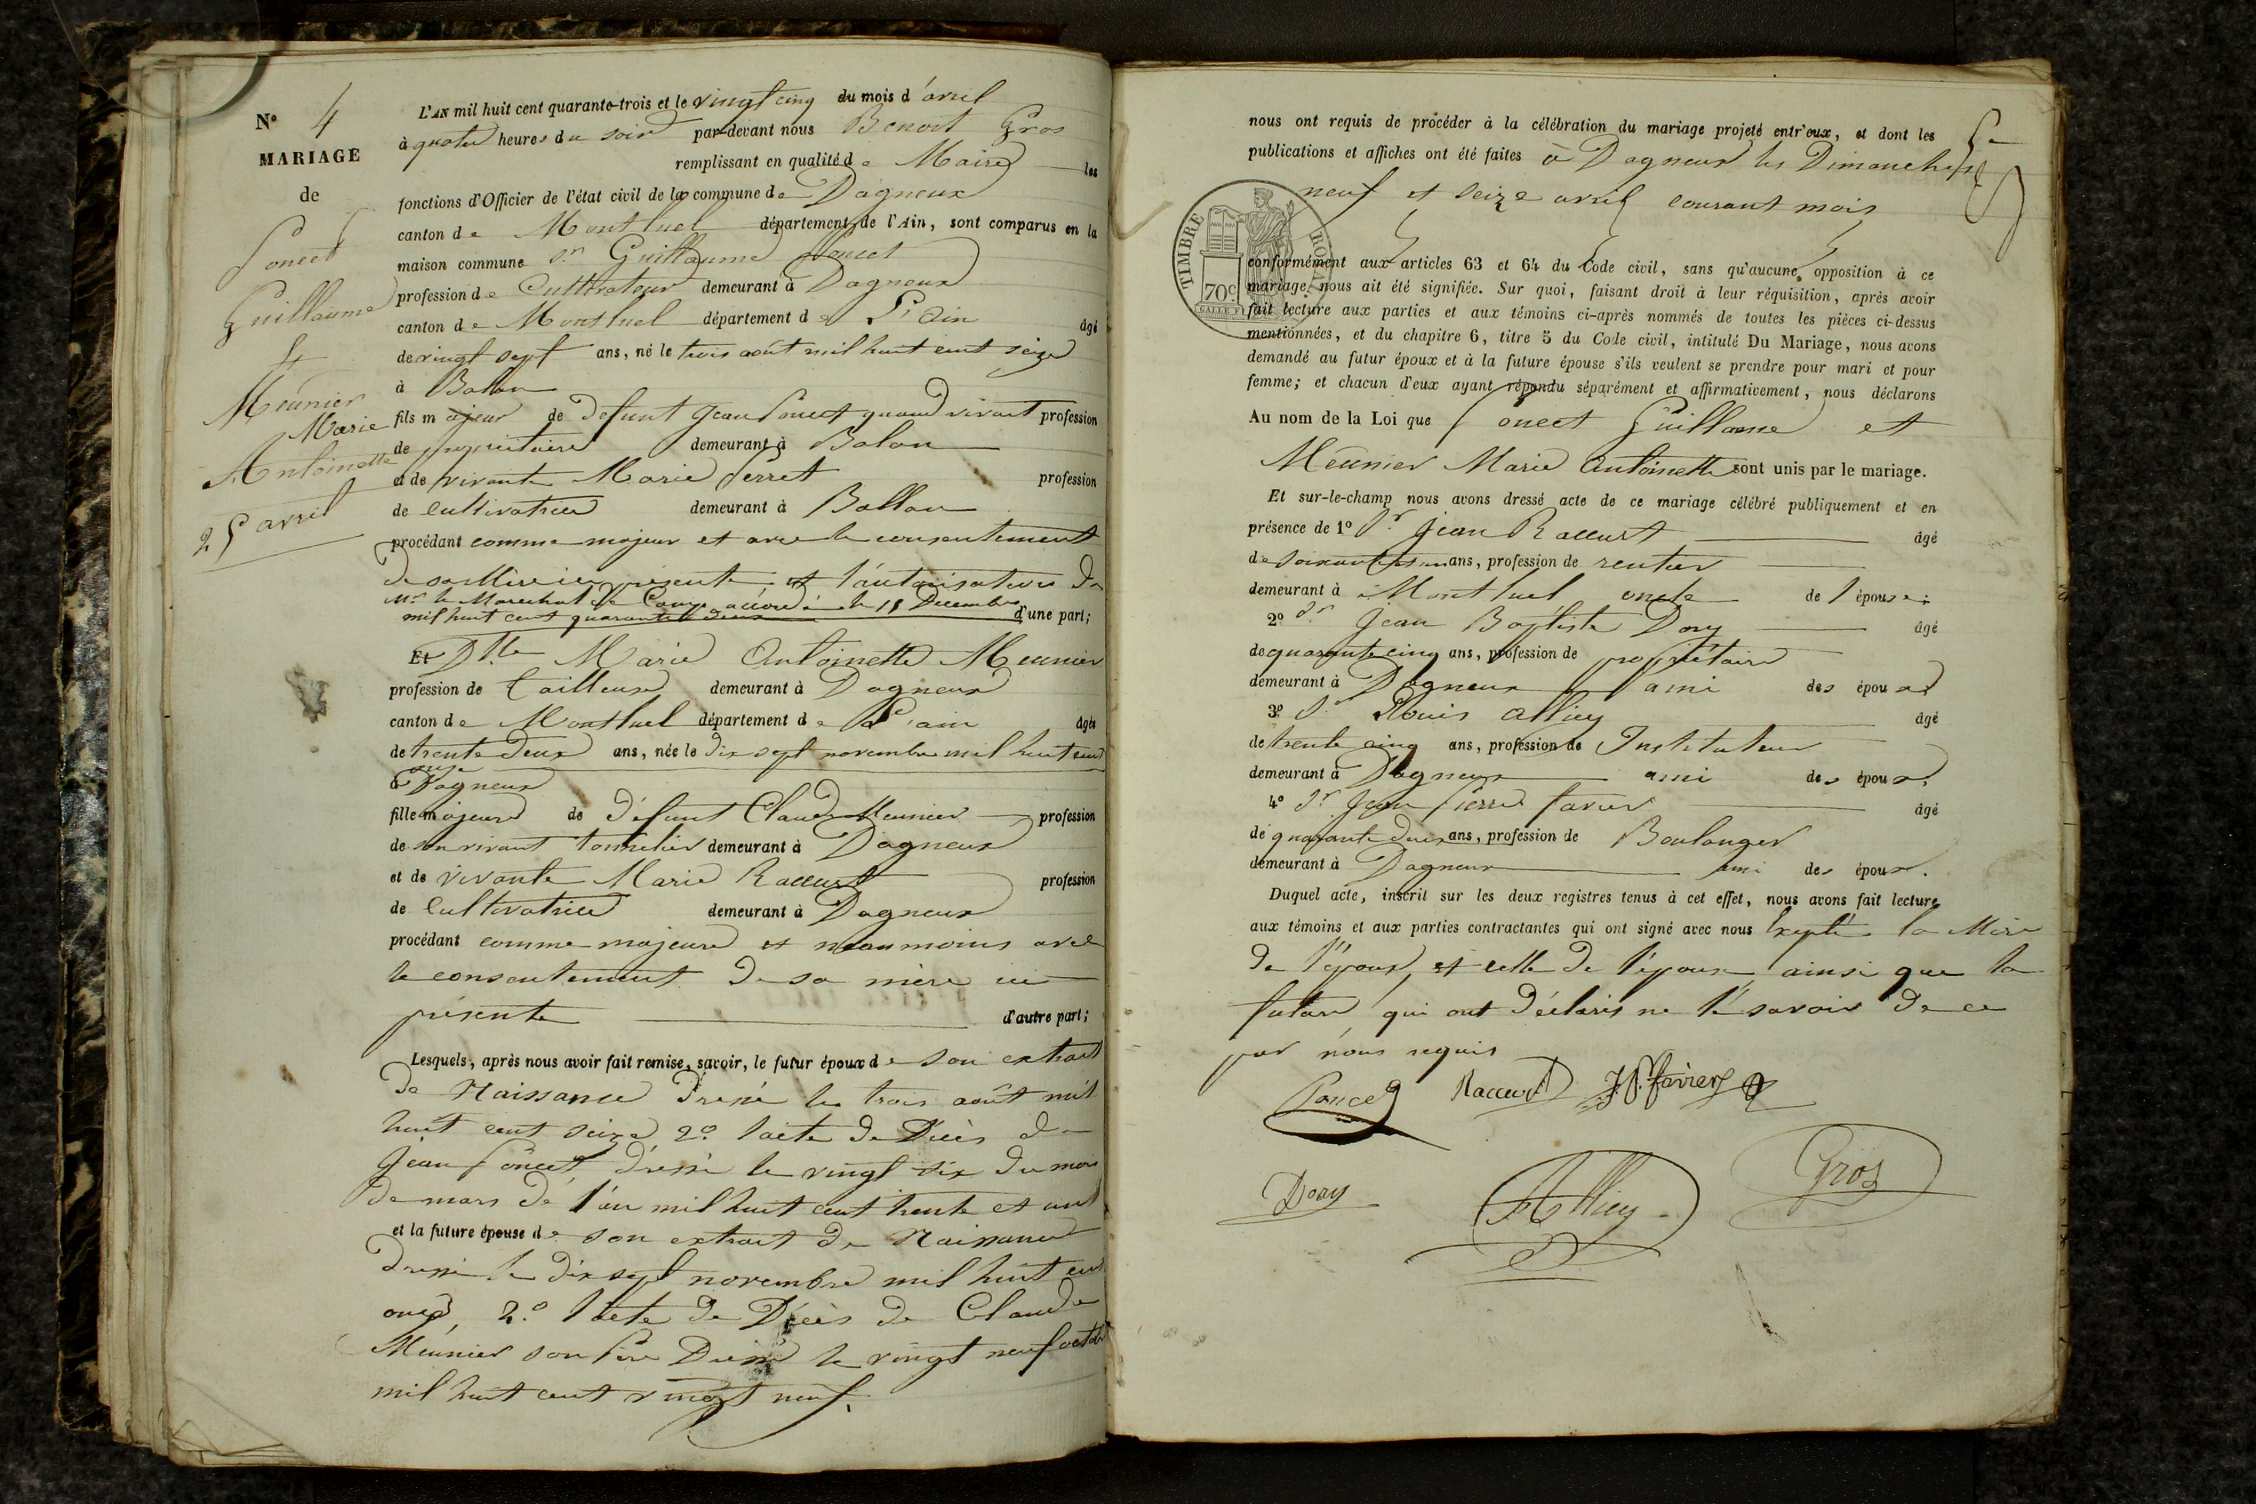 N° 4
MARIAGE
de
Poncet
Guillaume
&
Meunier
Marie
Antoinette
25 avril
L'AN mil huit cent quarante-trois et le vingt cinq du mois d'avril
à quatre heures du soir par-devant nous Benoit Gros
remplissant en qualité de Maire les
fonctions d'Officier de l'état civil de la commune de Dagneux
canton de Montluel département de l'Ain, sont comparus en la
maison commune Sr Guillaume Poncet
profession de Cultivateur demeurant à Dagneux
canton de Montluel département de L'Ain âgé
de vingt sept ans, né le trois août mil huit cent seize
à Balan
fils majeur de défunt Jean Poncet quand vivant profession
de propriétaire demeurant à Balan
et de vivante Marie Perret profession
de Cultivatrice demeurant à Ballan
procédant comme majeur et avec le consentement
de sa Mère ici présente et l'autorisation de
Mr le Marechal de Camp accordée le 18 Decembre
mil huit cent quarante deux d'une part;
Et Dlle Marie Antoinette Meunier
profession de Tailleuse demeurant à Dagneux
canton de Montluel département de L'ain âgée
de trente deux ans, née le dix sept novembre mil huit cent
onze
à Dagneux
fille majeure de défunt Claude Meunier profession
de son vivant tonnelier demeurant à Dagneux
et de vivante Marie Raccurt profession
de Cultivatrice demeurant à Dagneux
procédant comme majeure et néanmoins avec
le consentement de sa mère ici
présente d'autre part;
Lesquels, après nous avoir fait remise, savoir, le futur époux de son extrait
de Naissance dressé le trois août mil
huit cent seize, 2° l'acte de Décès de
Jean Poncet dressé le vingt six du mois
de mars de l'an mil huit cent trente et un
et la future épouse de son extrait de Naissance
dressé le dix sept novembre mil huit cent
onze, 2° l'acte de Décès de Claude
Meunier son Père Dressé le vingt neuf octobre
mil huit cent vingt neuf.
nous ont requis de procéder à la célébration du mariage projeté entr'eux, et dont les
publications et affiches ont été faites à Dagneux les Dimanches
neuf et seize avril courant mois
TIMBRE ROYAL
70c
conformément aux articles 63 et 64 du Code civil, sans qu'aucune opposition à ce
mariage nous ait été signifiée. Sur quoi, faisant droit à leur réquisition, après avoir
fait lecture aux parties et aux témoins ci-après nommés de toutes les pièces ci-dessus
mentionnées, et du chapitre 6, titre 5 du Code civil, intitulé Du Mariage, nous avons
demandé au futur époux et à la future épouse s'ils veulent se prendre pour mari et pour
femme; et chacun d'eux ayant répondu séparément et affirmativement, nous déclarons
Au nom de la Loi que Poncet Guillaume et
Meunier Marie Antoinette sont unis par le mariage.
Et sur-le-champ nous avons dressé acte de ce mariage célébré publiquement et en
présence de 1° Sr Jean Raccurt âgé
de ans, profession de rentier
demeurant à Montluel oncle de l'épouse;
2° Sr Jean Baptiste Dory âgé
de quarante cinq ans, profession de propriétaire
demeurant à Dagneux ami des époux
3° Sr Louis Alliey âgé
de trente cinq ans, profession de Instituteur
demeurant à Dagneux ami des époux.
4° Sr Jean Pierre Favier âgé
de quarante deux ans, profession de Boulanger
demeurant à Dagneux ami des époux.
Duquel acte, inscrit sur les deux registres tenus à cet effet, nous avons fait lecture
aux témoins et aux parties contractantes qui ont signé avec nous Excepté la Mère
de l'époux, et celle de l'épouse ainsi que la
future qui ont déclaré ne le savoir de ce
par nous requis
Poncet Raccurt J.P. Favier
Dory Alliey Gros